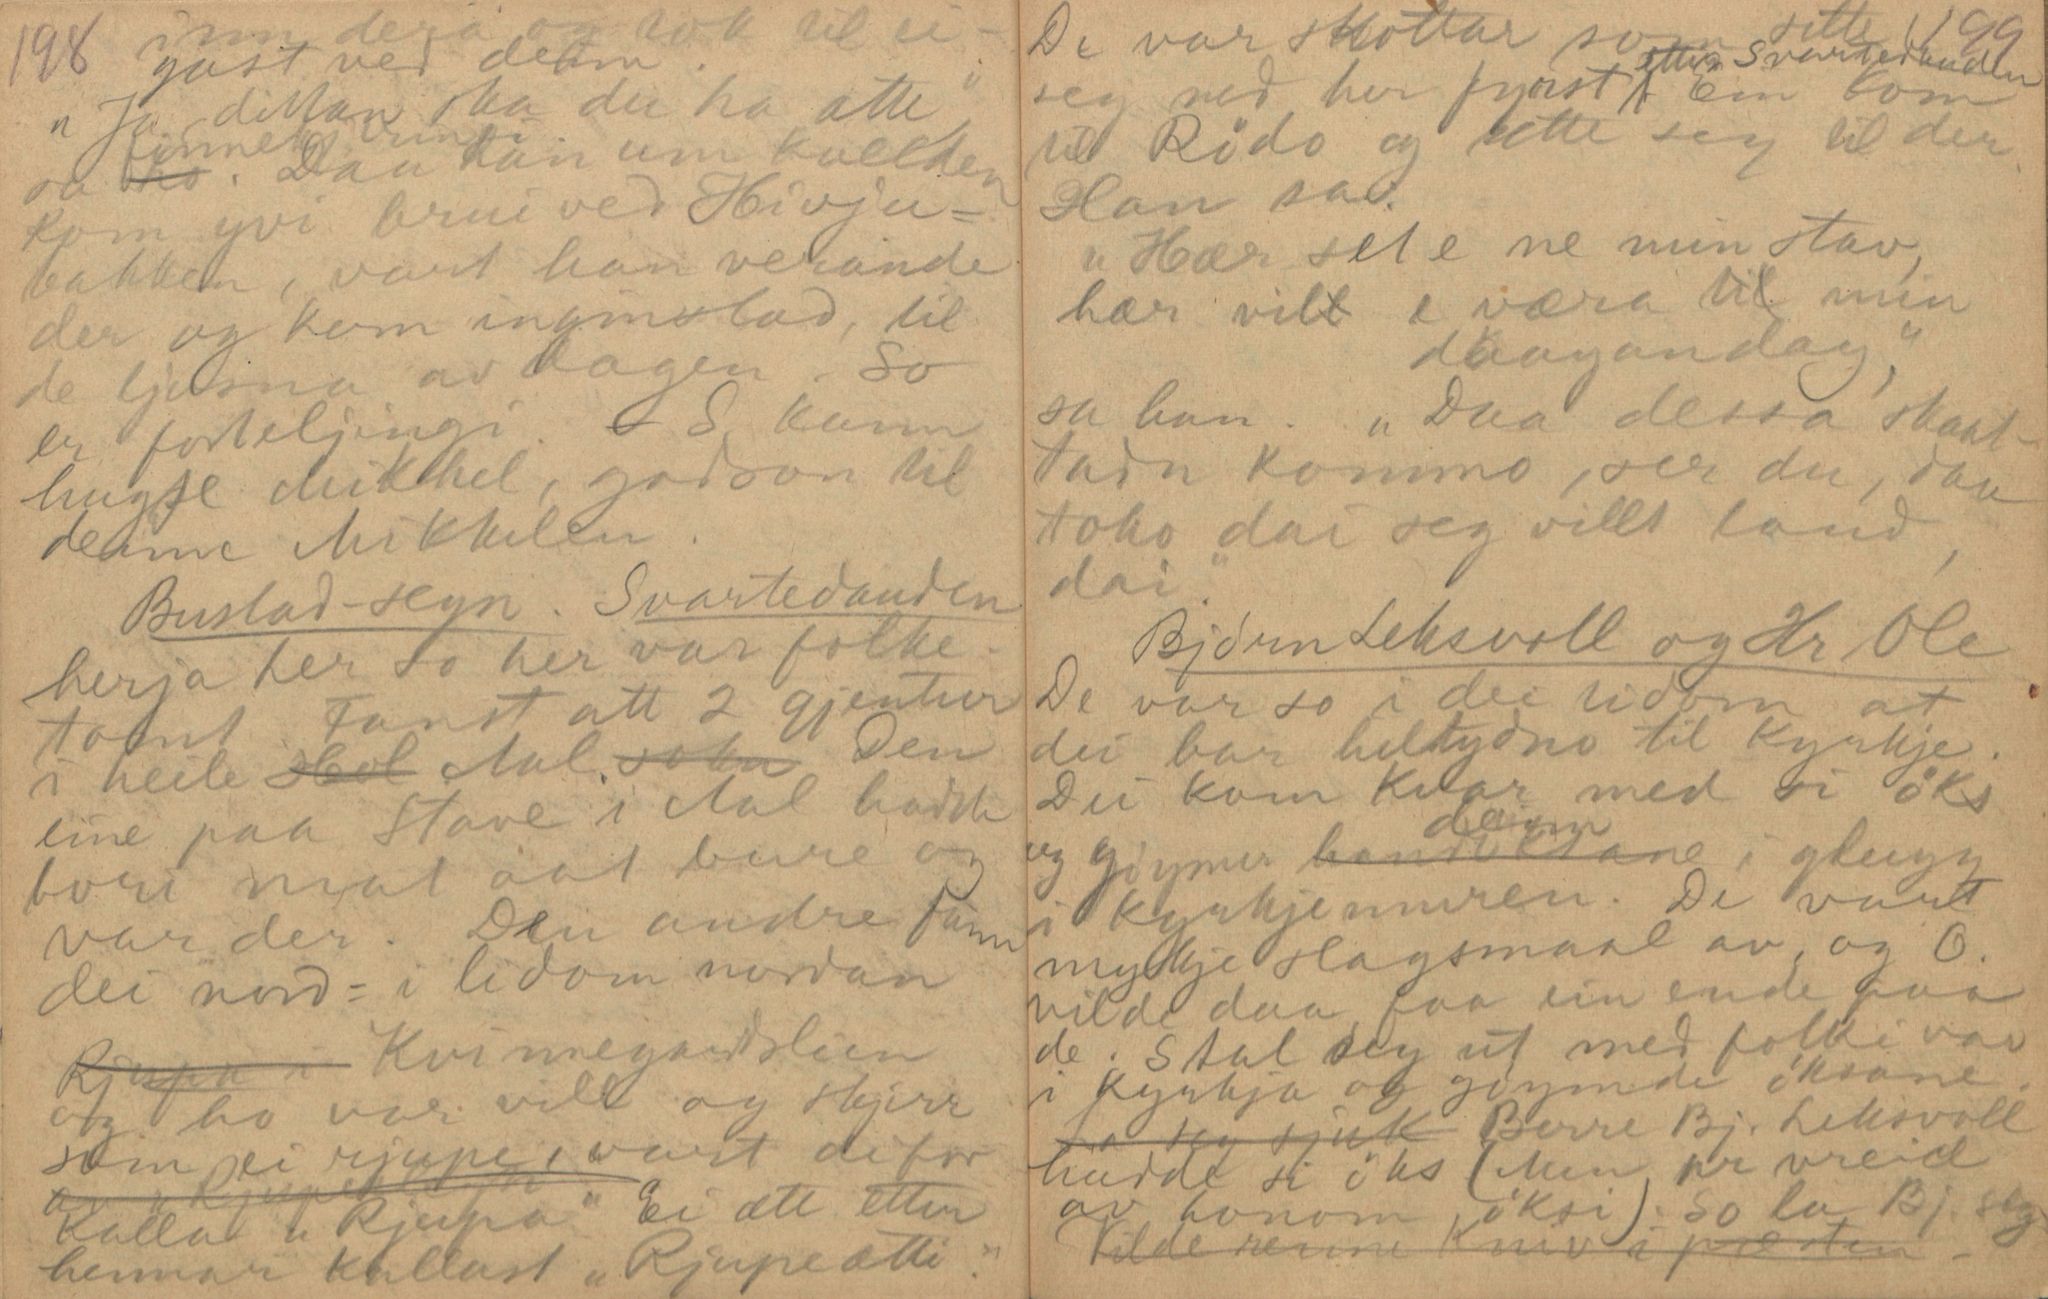 198
inn derá og tok til ü-
gast ved deim.
„Ja, dittan ska du ha atte"
sa finnekvinni. Daa tán um kvellden
kom yvi brui ved Hivju-
bakken, vart han verande
der og kom inginstad, til
de ljosna av dagen. So
er forteljingi. S. kunn
hugse Mikkel, godson til
denne Mikkelen.
Bustad-segn. Svartedauden
herja her so her var folke-
tomt. Fanst att 2 gjentur
i heile Hol Aal soka Den
eine paa Stave i Aal hadde
bori mat aat bure og
var der. Den andre fann
dei nord- i lidom nordan
Rjupa i Kvinnegardslien
og ho var vill og skjerr
som ei rjupe, vart difor
kalla „Rjupa" Ei ætt etter
hennar kallast „Rjupeætti."
199
De var skottar som sette
seg ned her fyrst etter Svartedauden. Ein kom
til Rödo og sette seg til der.
Han sa:
„Hær set e ne min stav,
hær vill e væra til min
daagandag,"
sa han. „Daa dessa skaat-
tadn kommo, ser du, daa
toko dai seg villt land,
dai."
Björn Leksvoll og Hr. Ole
De var so i dei tidom at
dei bar heltydno til kyrkje.
Dei kom kvar med si öks
og göymer deim i glugg
i kyrkjemuren. De vart
mykje slagsmaal av, og O.
vilde daa faa ein ende paa
de. Stal seg ut med folki var
i kyrkja og göymde öksane.
sa seg sjuk Berre Bj. Leksvoll
hadde si öks (Mun pr vreid
av honom, öksi). So la Bj. seg
Vilde renne kniv i præsten -